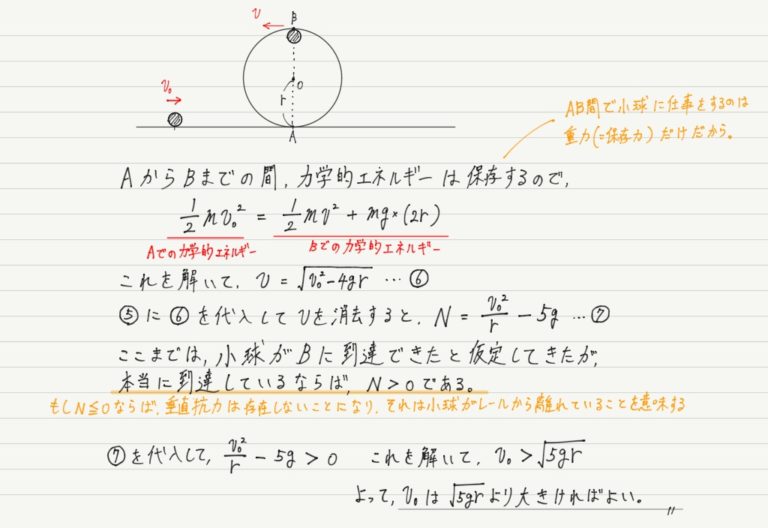 v
B
v₀
O
r
A
AB間で小球に仕事をするのは
重力(=保存力)だけだから。
AからBまでの間, 力学的エネルギーは保存するので,
1/2 mv₀² = 1/2 mv² + mg×(2r)
Aでの力学的エネルギー Bでの力学的エネルギー
これを解いて, v = √(v₀²-4gr) … ⑥
⑤に⑥を代入してvを消去すると, N = v₀²/r - 5g … ⑦
ここまでは, 小球がBに到達できたと仮定してきたが,
本当に到達しているならば, N > 0 である。
もしN≦0ならば, 垂直抗力は存在しないことになり, それは小球がレールから離れていることを意味する
⑦を代入して, v₀²/r - 5g > 0 これを解いて, v₀ > √(5gr)
よって, v₀は√(5gr)より大きければよい。〃